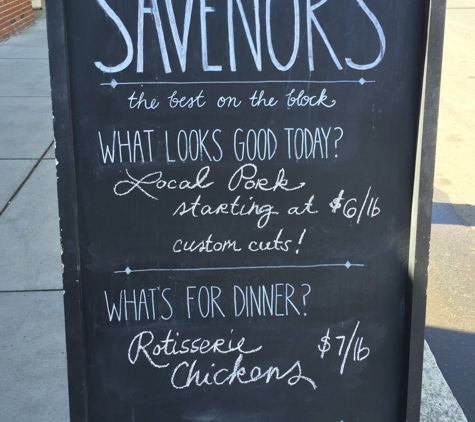 SAVENORS
the best on the block
WHAT LOOKS GOOD TODAY?
Local Pork
starting at $6/lb
custom cuts!
WHAT'S FOR DINNER?
Rotisserie $7/lb
Chickens